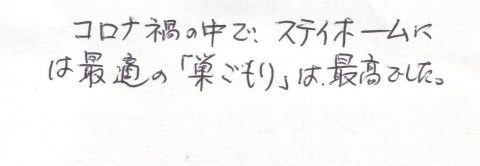 コロナ禍の中で、ステイホームに
は最適の「巣ごもり」は、最高でした。